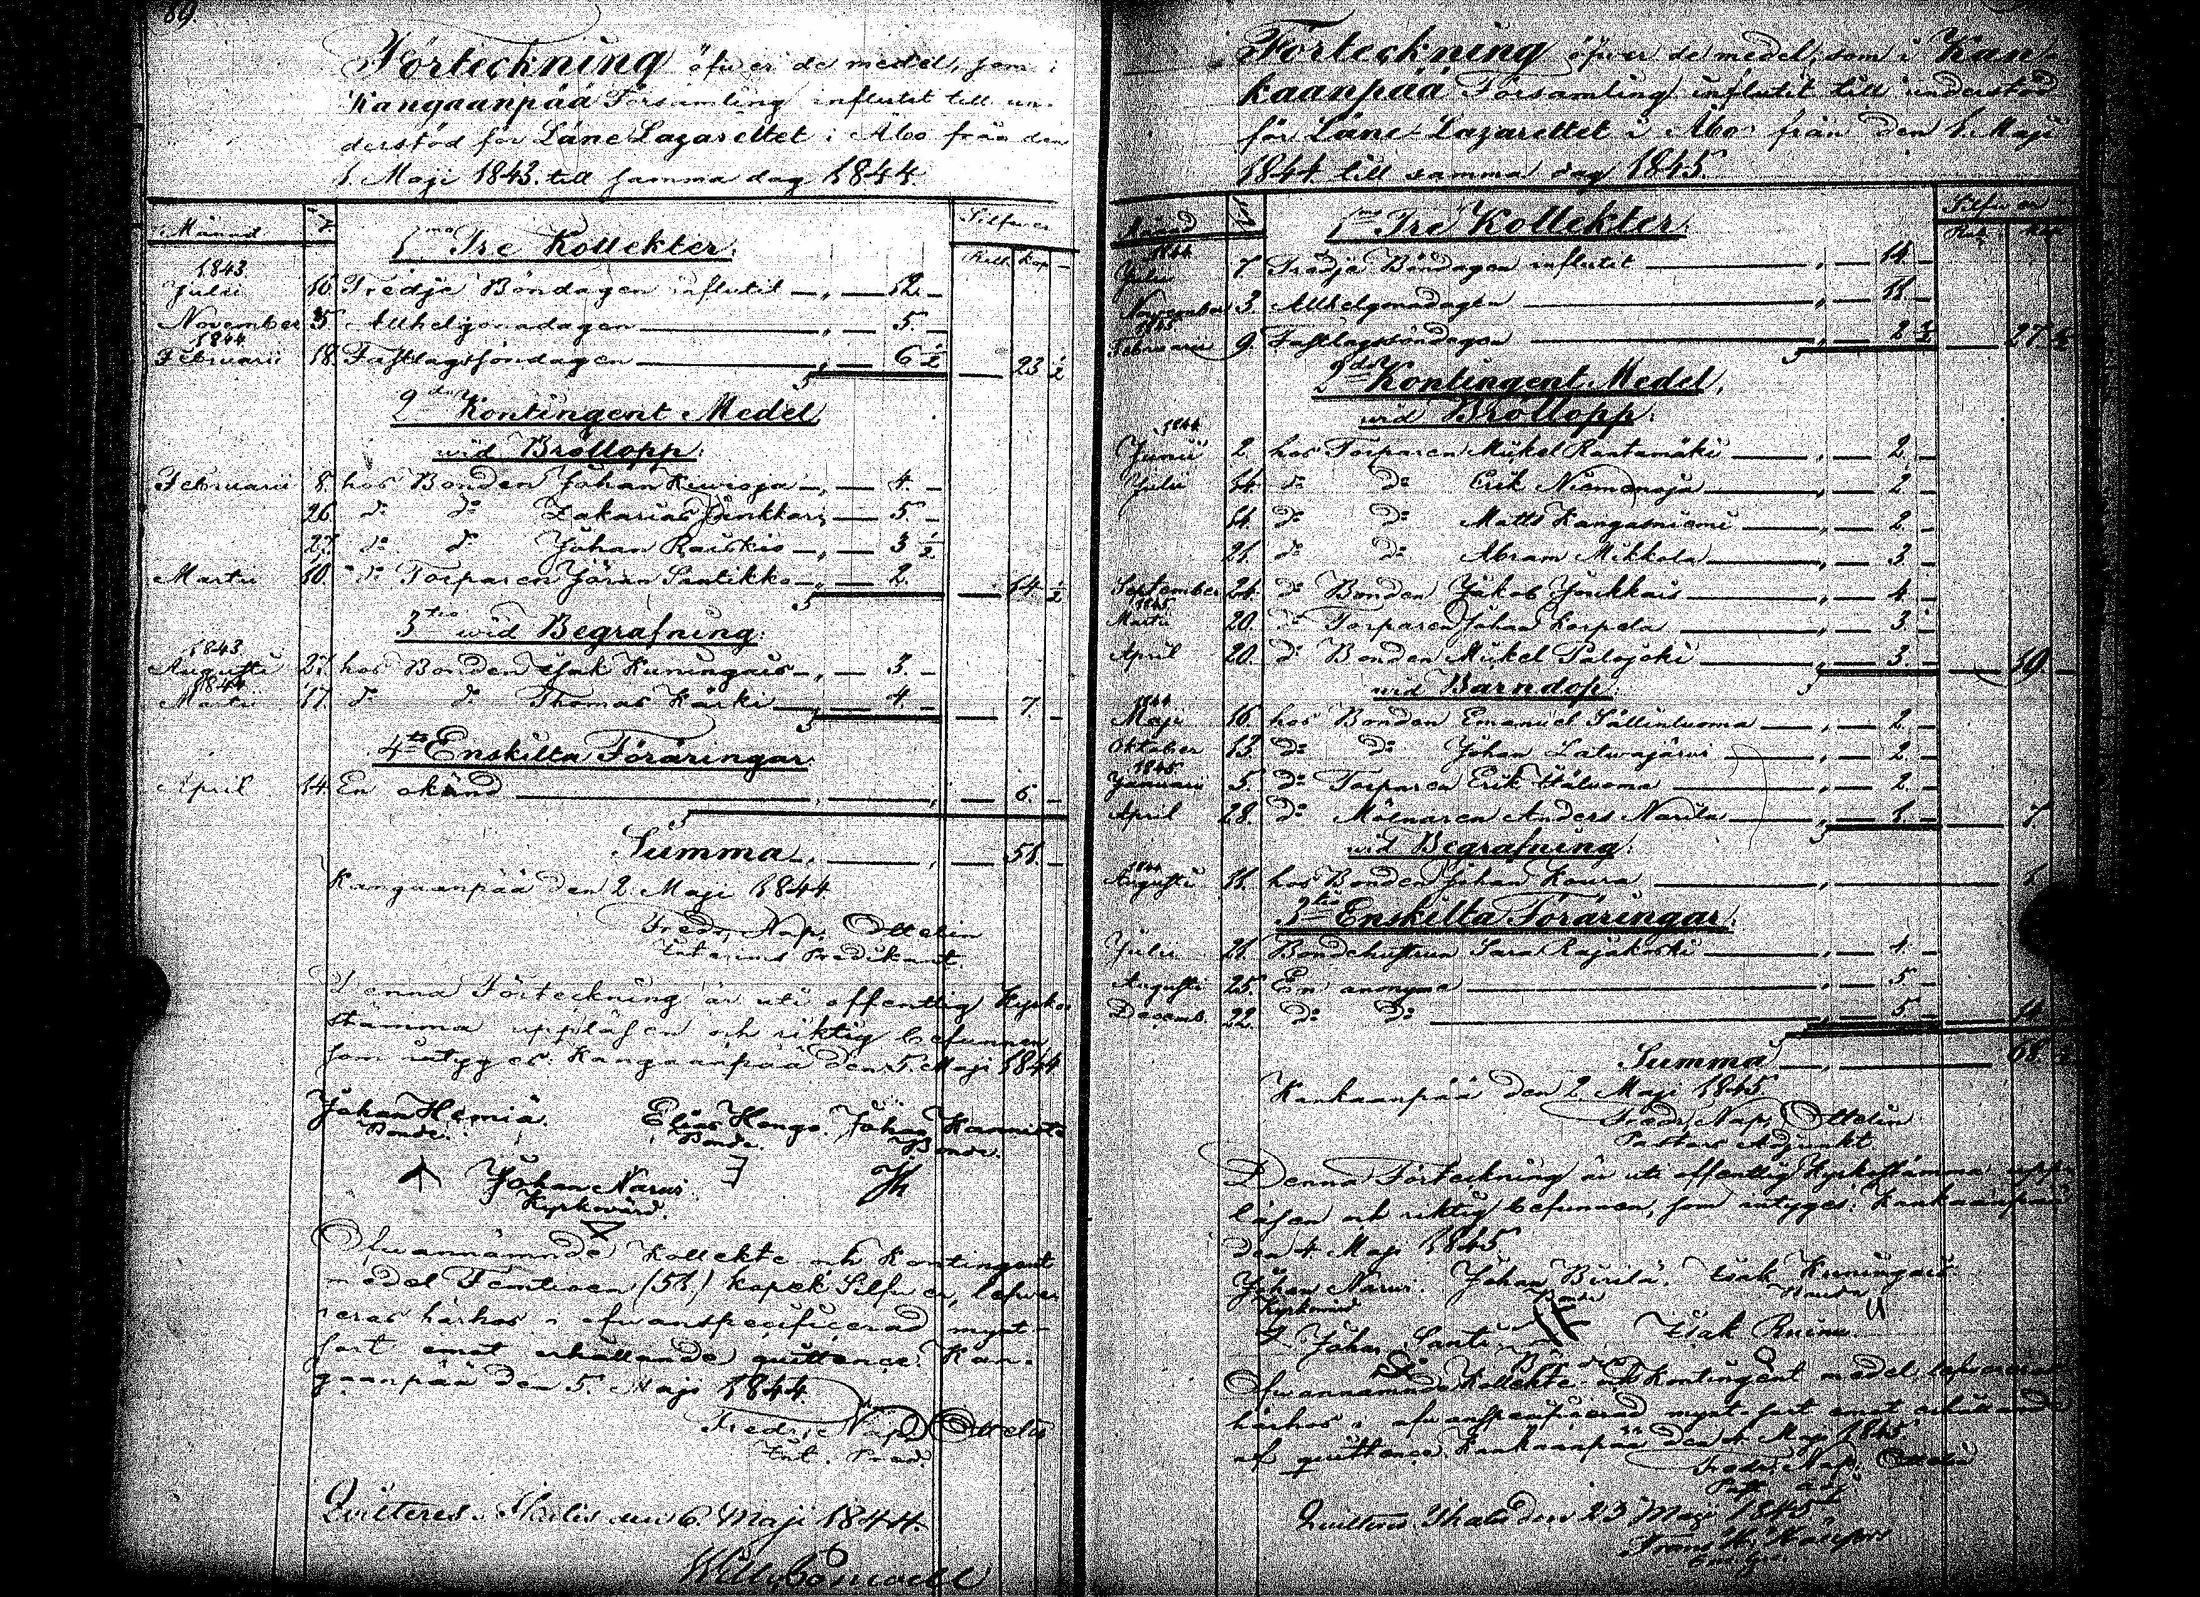 89.
Förteckning öfver de medel, som i
Kangaanpää Församling influtit till un-
derstöd för Läne Lazarettet i Åbo från den
1. Maji 1843. till samma dag 1844.
Månad Silfver
1mo Tre Kollekter. Rub. Kop.
1843
Julii 16. Tredje Böndagen influtit — 12. —
November 5 Allhelgonadagen — 5. —
1844
Februarii 18. Fastlagssöndagen — 6 1/2 — 23 1/2
2do Kontingent Medel
wid Bröllopp.
Februarii 8. hos Bonden Johan — 4 —
26. do do Zakarias — 5. —
27. do do Johan Raiskio — 3 1/2
Martii 10. do Torparen Jöran Santikko — 2. — 14 1/2
3tio wid Begrafning.
1843
Augusti 27. hos Bonden Isak Kuningais — 3. —
1844
Martii 17. do do Thomas Kärki — 4 — 7. —
4to Enskilta Föräringar.
April 14. En okänd — 6. —
Summa — 51. —
Kangaanpää den 2. Maji 1844.
Fredr. Nap. Ottelin
Interims Predikant.
Denna Förteckning är uti offentlig Kyrko-
stämma uppläsen och riktig befunnen,
som intyges. Kangaanpää den 5. Maji 1844
Johan Hemiä. Elias Hongo. Johan Kannisto
Bonde. Bonde. Bonde.
Johan Narwi
Kyrkovärd.
Ofwannämnde Kollekte och Kontingent
medel Femtioen (51.) kopek Silfver, lefwer-
eras härhos i ofwanspecificerad mynt-
sort emot erhållande quittence. Kan-
gaanpää den 5. Maji 1844.
Fredr. Nap. Ottelin
Int. Pred.
Quitteras den 6. Maji 1844.
Förteckning öfwer de medel, som i Kan-
kaanpää Församling influtit till understöd
för Läne-Lazarettet i Åbo från den 1. Maji
1844. till samma dag 1845.
Månad Silfver
1mo Tre Kollekter. Rub. Kop.
1844
Julii 7 Tredje Böndagen influtit — 14 —
November 3. Allhelgonadagen — 11. —
1845
Februarii 9. Fastlagssöndagen — 2 1/2 — 27 1/2
2do Kontingent Medel,
wid Bröllopp.
1844
Junii 2 hos Torparen Mikel Rantamäki — 2. —
Julii 14. do do Erik Niemenoja — 2 —
14. do do Matts Kangasniemi — 2. —
21. do do Abram Mikkola — 3. —
September 24. do Bonden Jakob — 4. —
1845
Martii 20. do Torparen Johan Korpela — 3. —
April 20. do Bonden Mikel Palojoki — 3. — 19. —
wid Barndop.
1844
Maji 16 hos Bonden Emanuel Sällinluoma — 2. —
Oktober 13. do do Johan Latwajärwi — 2. —
1845
Januarii 5. do Torparen Erik — 2. —
April 28. do Mölnaren Anders Narila — 1. — 7. —
wid Begrafning.
1844
Augusti 11. hos Bonden Johan Koura — 1.
3tio Enskilta Föräringar.
Julii 21. Bondehustrun Sara Rajakoski — 4 —
Augusti 25. En anonyme — 5 —
Decemb. 22. do do — 5 — 14.
Summa — 68. 1/2
Kankaanpää den 2. Maji 1845.
Fredr. Nap. Ottelin
Pastors Adjunkt
Denna Förteckning är uti offentlig Kyrkostämma upp-
läsen och riktig befunnen, som intyges. Kankaanpää
den 4 Maji 1845
Johan Narwi. Johan Birilä. Isak Kuningais.
Kyrkovärd Bonde Bonde
Johan Santi Isak Ruina
Ofwannämnde Kollekte och Kontingent medel lefwereras
härhos i ofwanspecificerad mynt-sort emot erhållande
af quittence. Kankaanpää den 4. Maji 1845.
Fredr. Nap. Ottelin
Past. Adj.
Quitteras den 23 Maji 1845
Frans